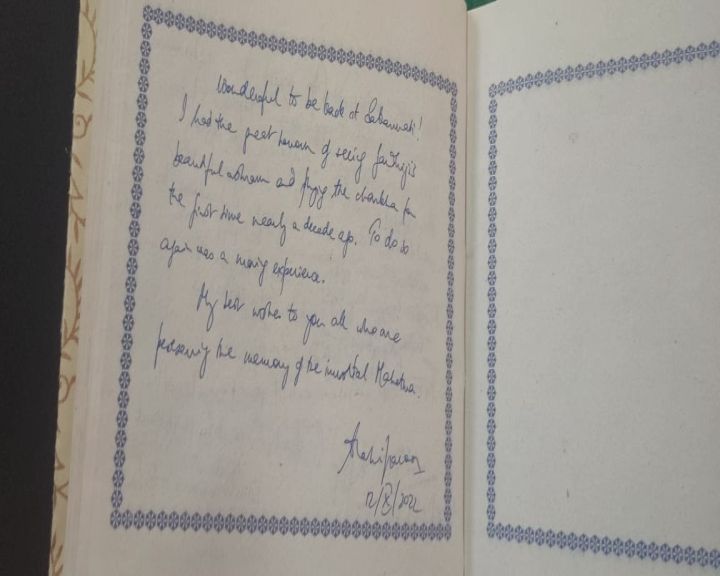 Wonderful to be back at Sabarmati!
I had the great honour of seeing Gandhiji's
beautiful ashram and plying the charkha for
the first time nearly a decade ago. To do so
again was a moving experience.
My best wishes to you all who are
preserving the memory of the immortal Mahatma.
12/X/2022